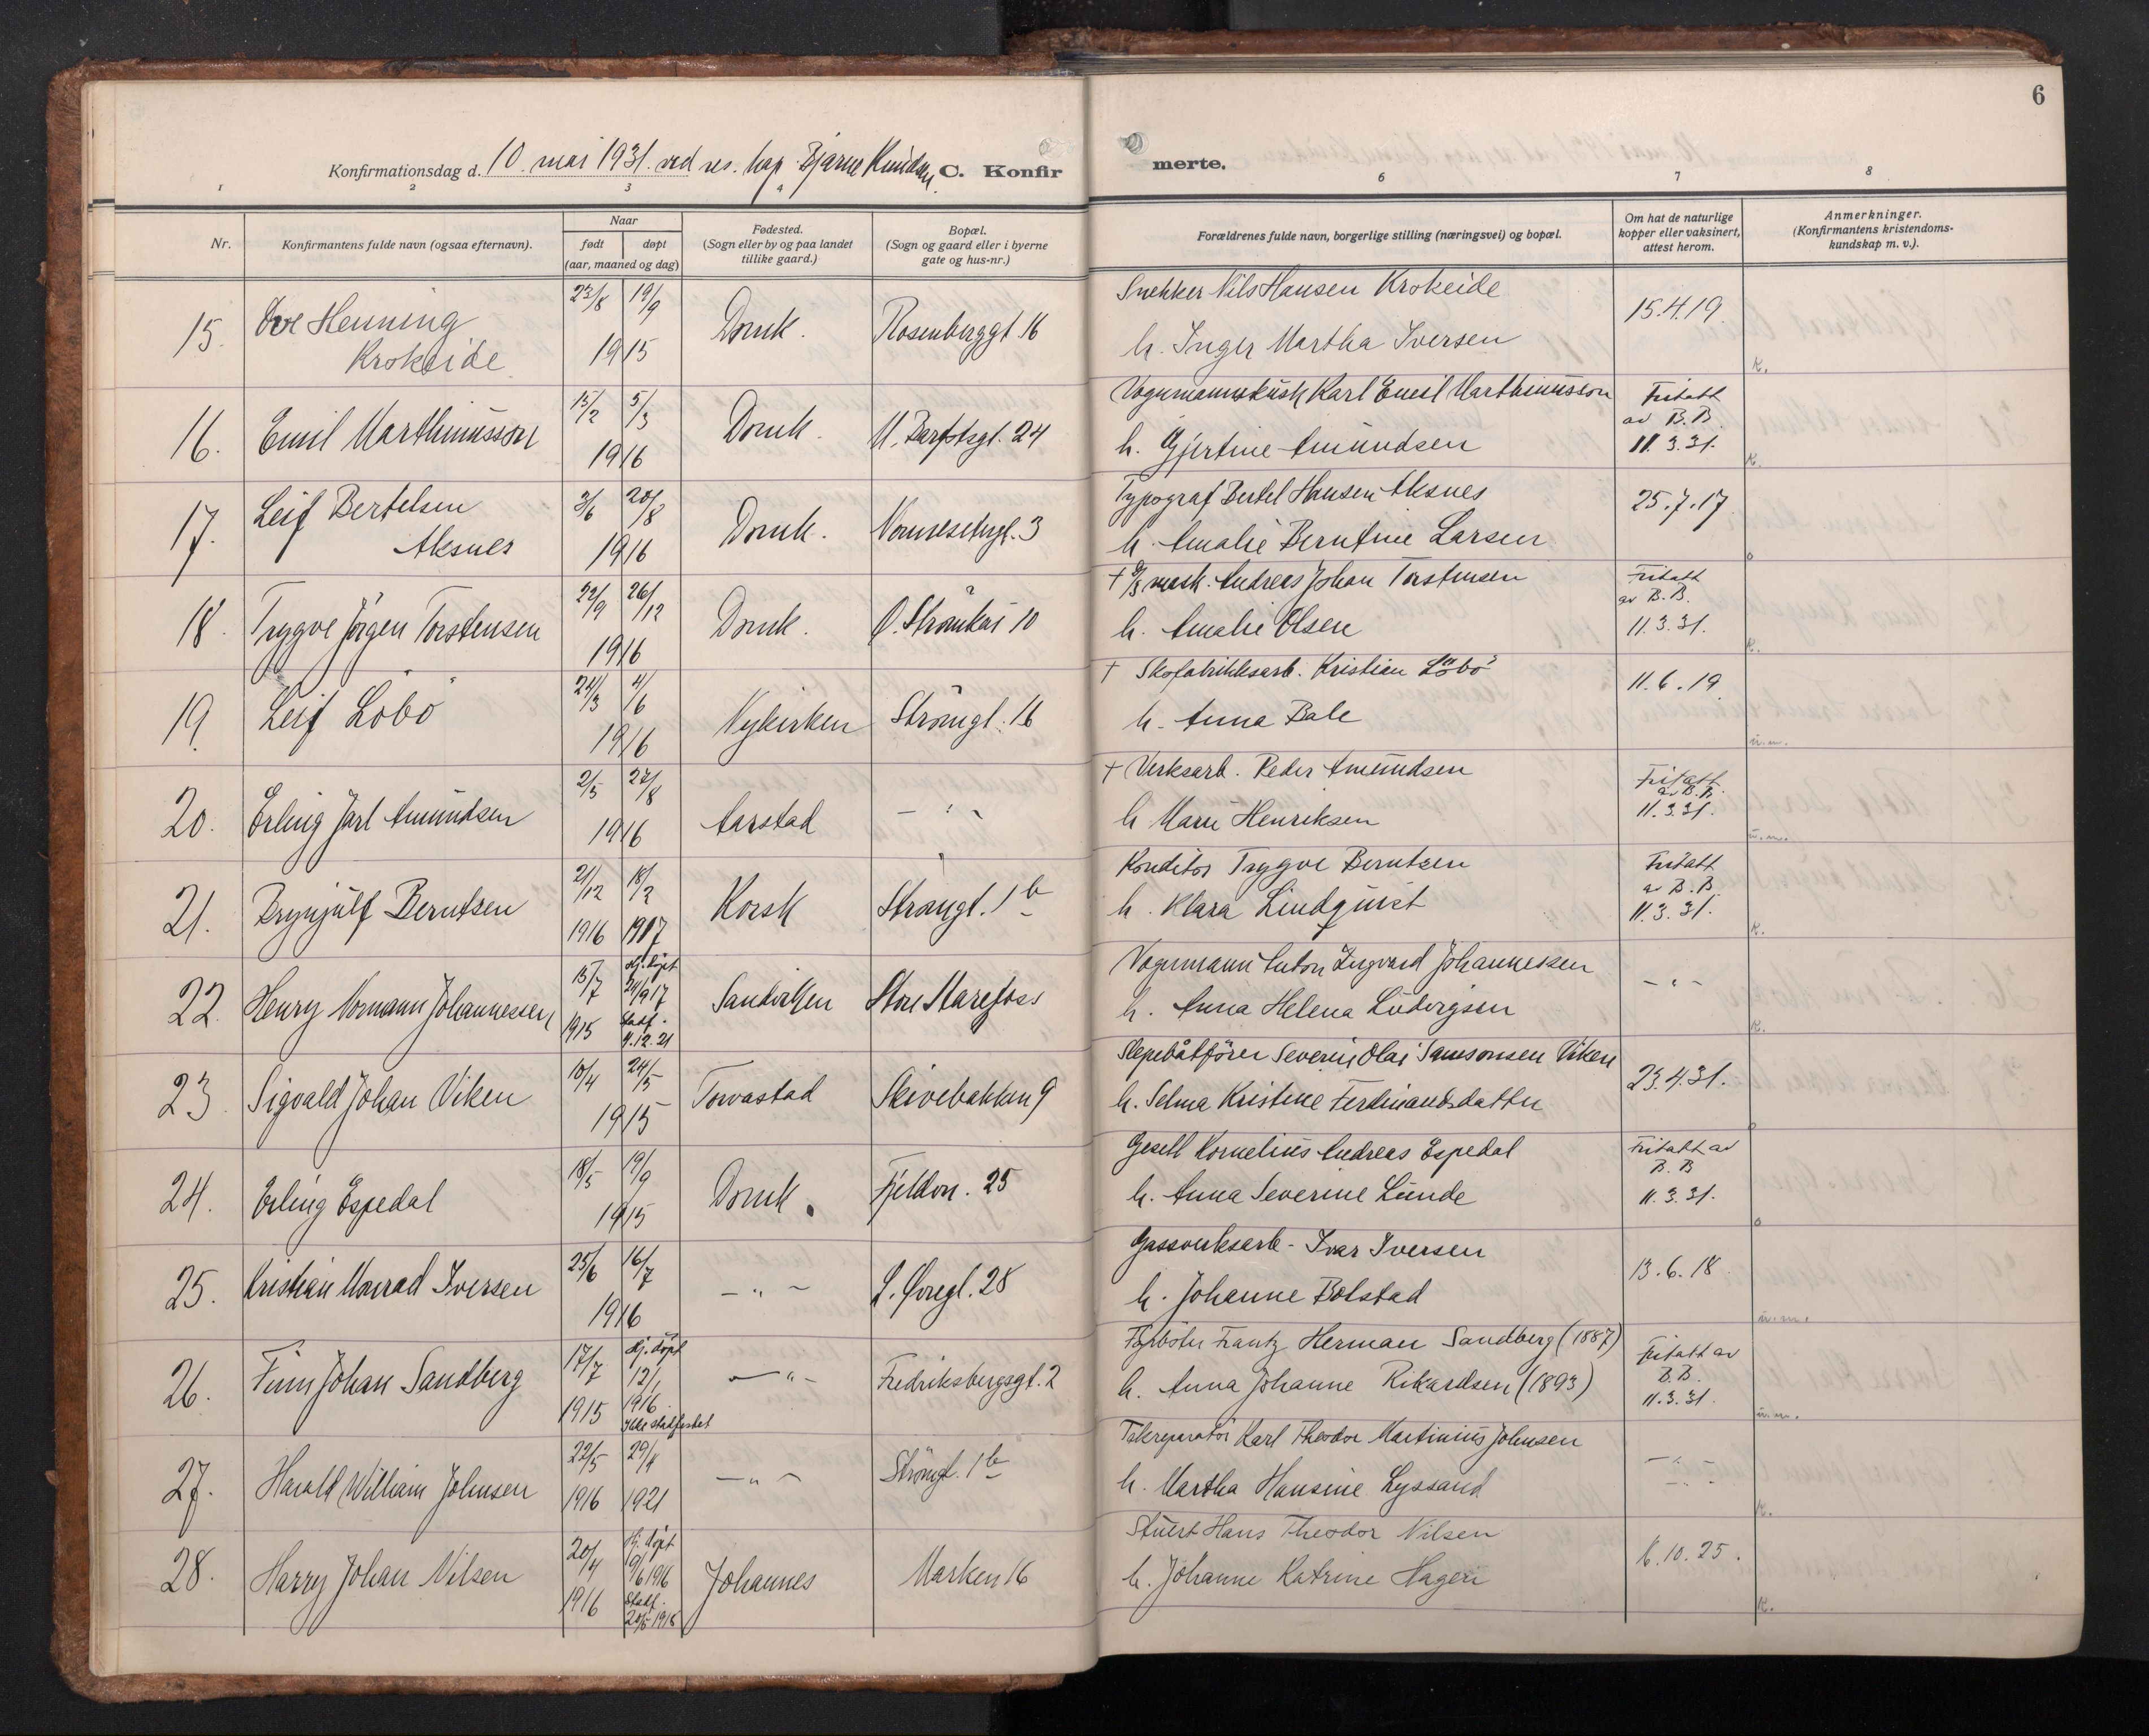 6
Konfirmationsdag d. 10. mai 1931. ved res. kap. Bjarne C. Konfir
merte.
1 2 3 4 6 7 8
Nr.
Konfirmantens fulde navn (ogsaa efternavn).
Naar
født døpt
(aar, maaned og dag)
Fødested.
(Sogn eller by og paa landet
tillike gaard.)
Bopæl.
(Sogn og gaard eller i byerne
gate og hus-nr.)
Forældrenes fulde navn, borgerlige stilling (næringsvei) og bopæl.
Om hat de naturlige
kopper eller vaksinert,
attest herom.
Anmerkninger.
(Konfirmantens kristendoms-
kundskap m. v.).
15. Ove Henning
Krokeide
23/8 19/9
1915
Domk.
Rosenberggt. 16
Snekker Nils Hansen Krokeide
h. Inger Martha Iversen
15.4.19.
K.
16. Emil Marthinusson
15/2 5/3
1916
Domk.
24
Vognmannskusk Karl Emil Marthinusson
h. Gjertine Amundsen
Fritatt
av B.B.
11.3.31.
K.
17. Leif Bertelsen
Aksnes
3/6 20/8
1916
Domk.
3
Typograf Bertel Hansen Aksnes
h. Amalie Berntine Larsen
25.7.17
o
18. Trygve Jörgen Torstensen
22/9 26/12
1916
Domk.
Ö. Strömkai 10
† mask. Andreas Johan Torstensen
h. Amalie Olsen
Fritatt
av B.B.
11.3.31.
K.
19. Leif Löbö
24/3 4/6
1916
Nykirken
Strömgt. 16
† Skofabrikksarb. Kristian Löbö
h. Anna Bale
11.6.19.
u.m.
20. Erling Jarl Amundsen
2/5 27/8
1916
Aarstad
— " —
† Verksarb. Peder Amundsen
h Marie Henriksen
Fritatt
av B.B.
11.3.31.
u.m.
21. Brynjulf Berntsen
21/12 18/2
1916 1917
Korsk
Strömgt. 1 b
Konditor Trygve Berntsen
h. Klara Lindquist
Fritatt
av B.B.
11.3.31.
K.
22. Henry Normann Johannessen
15/7 Hj. döpt
24/9 17
1915 Stadf.
4.12.21
Sandviken
Store Starefoss
Vognmann Anton Ingvard Johannessen
h. Anna Helena Ludvigsen
— " —
K.
23. Sigvald Johan Viken
10/4 24/5
1915
Torvastad
Skivebakken 9
Slepebåtförer Severin Olai Samsonsen Viken
h. Selma Kristine Ferdinandsdatter
23.4.31.
o
24. Erling Espedal
18/5 19/9
1915
Domk.
Fjeldvn. 25
Gesell Kornelius Andreas Espedal
h. Anna Severine Lunde
Fritatt av
B.B
11.3.31.
o
25. Kristian Monrad Iversen
25/6 16/7
1916
— " —
L. Øvregt. 28
Gassverksarb. Ivar Iversen
h. Johanne Bolstad
13.6.18.
u.m.
26. Finn Johan Sandberg
17/7 Hj. döpt
12/1
1915 1916.
Ikke stadfestet
— " —
Fredriksbergsgt. 2
Fyrböter Frantz Herman Sandberg (1887)
h. Anna Johanne Rikardsen (1893)
Fritatt av
B.B.
11.3.31.
u.m.
27. Harald William Johnsen
22/5 29/4
1916 1921
— " —
Strömgt. 1 b
Karl Theodor Martinius Johnsen
h. Martha Hansine Lyssand
— " —
— " —
K.
28. Harry Johan Nilsen
20/4 Hj. döpt
9/6 1916
1916 Stadf.
Johannes
Marken 16
Stuert Hans Theodor Nilsen
h. Johanne Katrine Hageri
6.10.25.
K.